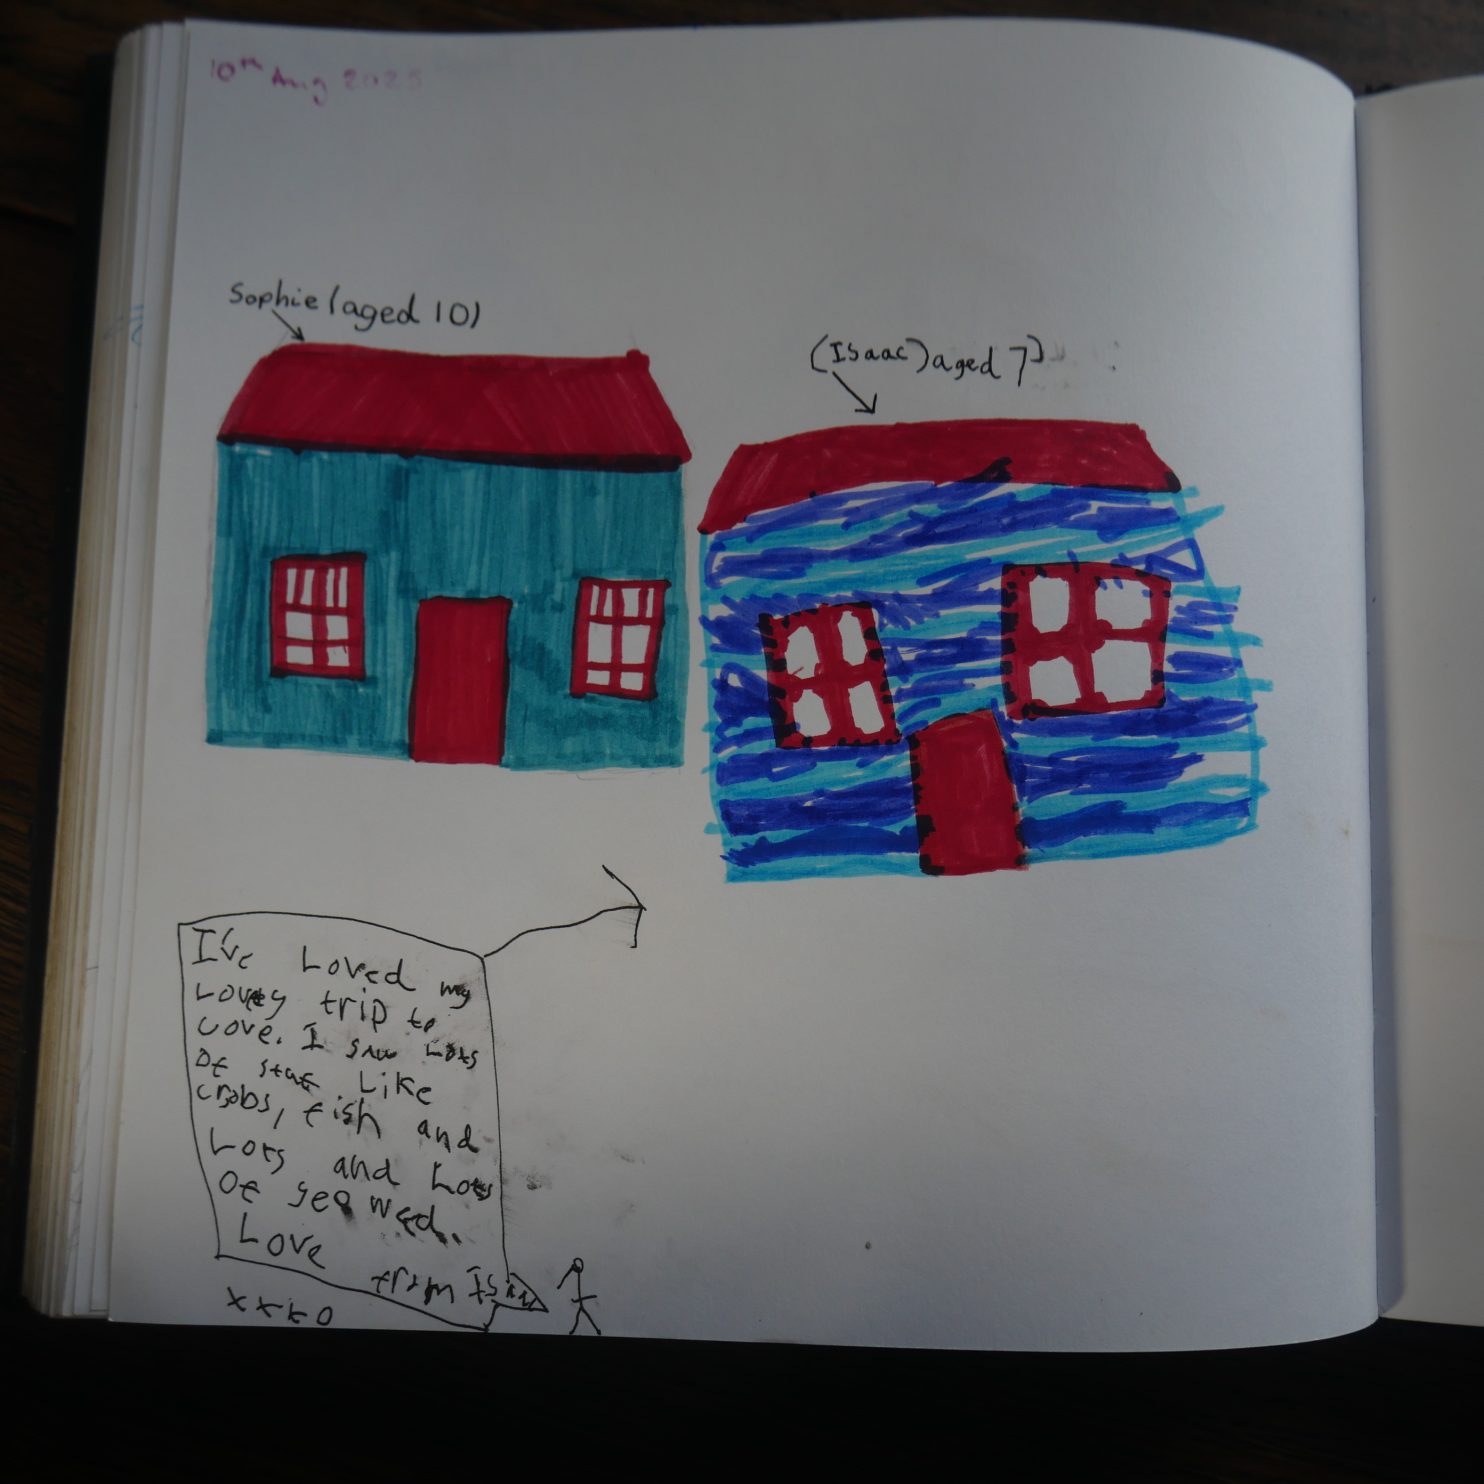 10th Aug 2025
Sophie (aged 10)
(Isaac) aged 7)
I've Loved my
Lovely trip to
cove. I saw Lots
of stuf Like
crabs, fish and
Lots and Lots
of seaweed.
Love
from Isaac
xxxo